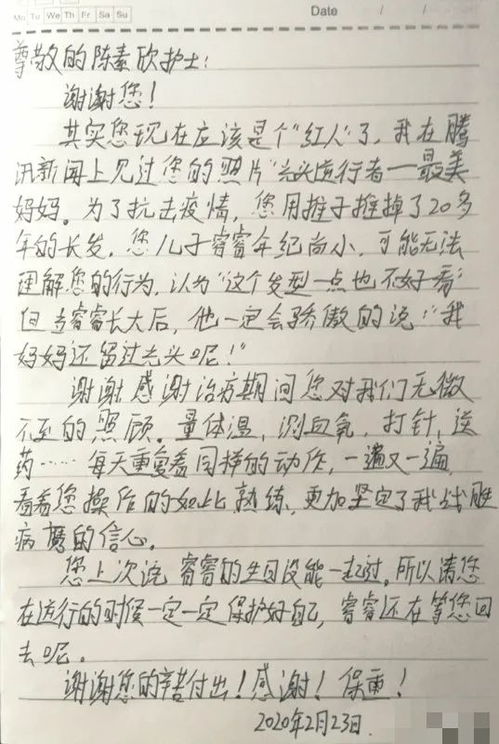 Mo Tu We Th Fr Sa Su
Date / /
尊敬的陈素欣护士:
谢谢您!
其实您现在应该是个"红人"了,我在腾
讯新闻上见过您的照片"光头逆行者—最美
妈妈。为了抗击疫情,您用推子推掉了20多
年的长发,您儿子睿睿年纪尚小,可能无法
理解您的行为,认为"这个发型一点也不好看"
但当睿睿长大后,他一定会骄傲的说:"我
妈妈还留过光头呢!"
谢谢感谢治疗期间您对我们无微
不至的照顾。量体温,测血氧,打针,送
药……每天重复着同样的动作,一遍又一遍,
看着您操作的如此熟练,更加坚定了我战胜
病魔的信心。
您上次说睿睿的生日没能一起过,所以请您
在逆行的时候一定一定保护好自己,睿睿还在等您回
去呢。
谢谢您的辛苦付出!感谢!保重!
2020年2月23日.